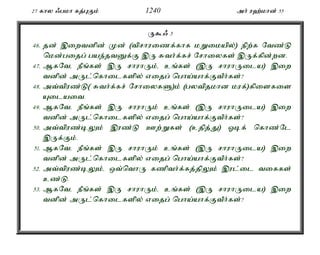 27 கால ஃபமா கத்புகும் 1240 அர் ரஹ்மான் 55
ருகூஃ 3
46. தன் இறைவனின் முன் (விசாரணைக்காக மறுமையில்) நிற்க வேண்டு
மென்பதைப் பயந்தவனுக்கு இரு சுவர்க்கச் சோலைகள் இருக்கின்றன.
47. ஆகவே, நீங்கள் இரு சாராரும், உங்கள் (இரு சாராருடைய) இறை
வனின் அருட்கொடைகளில் எதைப் பொய்யாக்குவீர்கள்?
48. அவ்விரண்டு( சுவர்க்கச் சோலைகளு)ம் (பலவிதமான மரக்)கிளைகளை
யுடையவை.
49. ஆகவே, நீங்கள் இரு சாராரும் உங்கள் (இரு சாராருடைய) இறை
வனின் அருட்கொடைகளில் எதைப் பொய்யாக்குவீர்கள்?
50. அவ்விரண்டிலும் இரண்டு ஊற்றுகள் (உதித்து) ஓடிக் கொண்டே
இருக்கும்.
51. ஆகவே, நீங்கள் இரு சாராரும் உங்கள் (இரு சாராருடைய) இறை
வனின் அருட்கொடைகளில் எதைப் பொய்யாக்குவீர்கள்?
52. அவ்விரண்டிலும், ஒவ்வொரு கனிவர்க்கத்திலும் இரட்டை வகைகள்
உண்டு.
53. ஆகவே, நீங்கள் இரு சாராரும், உங்கள் (இரு சாராருடைய) இறை
வனின் அருட்கொடைகளில் எதைப் பொய்யாக்குவீர்கள்?